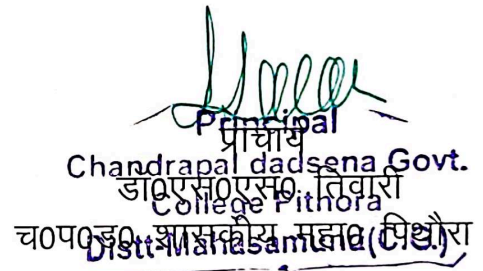 Principal
प्राचार्य
Chandrapal dadsena Govt.
डॉ0एस0एस0 तिवारी
College Pithora
च0प0ड0 शासकीय महा0 पिथौरा
Distt-Mahasamund (C.G.)